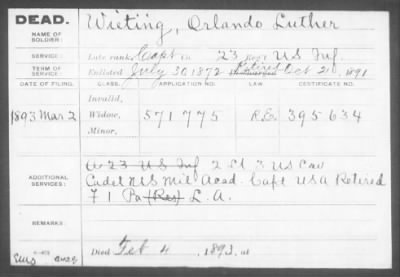 DEAD. Wieting, Orlando Luther
NAME OF SOLDIER:
SERVICE: Late rank, Capt Co. 23 Regt US Inf.
TERM OF SERVICE: Enlisted July 30, 1872 Retired Discharged Oct 21, 1891
DATE OF FILING. CLASS. APPLICATION NO. LAW. CERTIFICATE NO.
Invalid,
1893 Mar 2 Widow, 571775 R.E. 395634
Minor,
ADDITIONAL SERVICES: 23 US Inf 2 Lt 3 US Cav
Cadet US Mil Acad. Capt USA Retired
71 Pa (Res) L.A.
REMARKS:
Died Feb 4, 1893, at